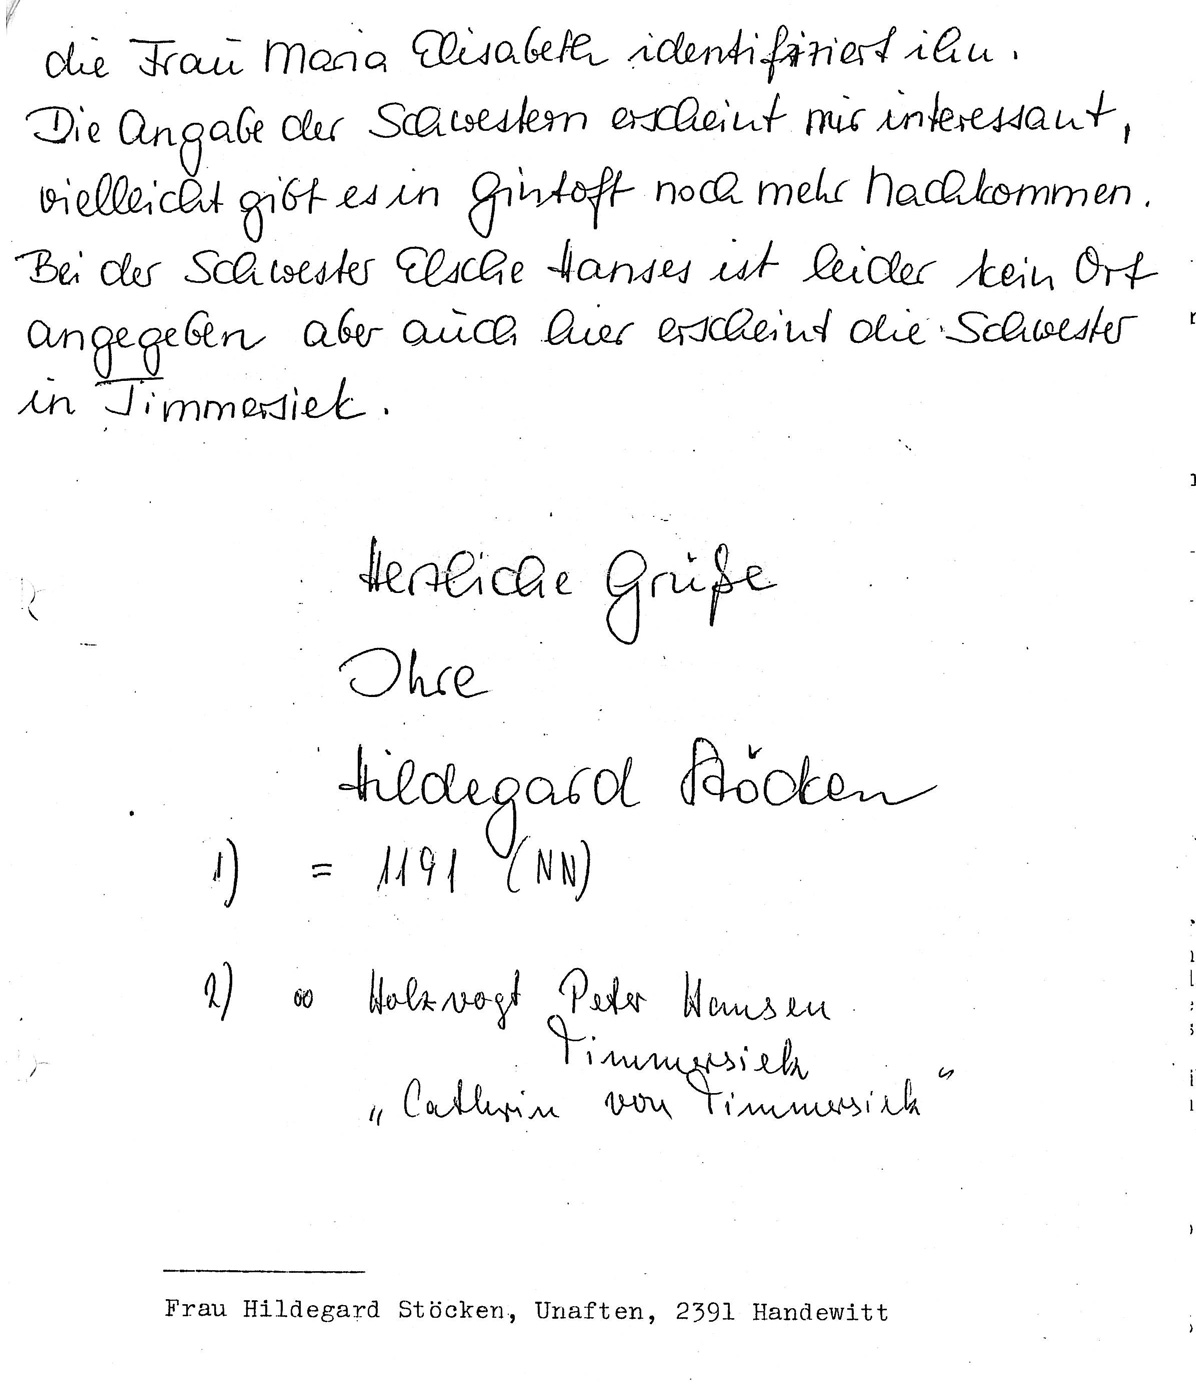 die Frau Maria Elisabeth identifiziert ihn.
Die Angabe der Schwestern erscheint mir interessant,
vielleicht gibt es in Gintoft noch mehr Nachkommen.
Bei der Schwester Elsche Hanses ist leider kein Ort
angegeben aber auch hier erscheint die Schwester
in Timmersiek.
Herzliche Grüße
Ihre
Hildegard Stöcken
1) = 1191 (NN)
2) ∞ Holzvogt Peter Hansen
Timmersiek
„Cathrin von Timmersiek“
Frau Hildegard Stöcken, Unaften, 2391 Handewitt